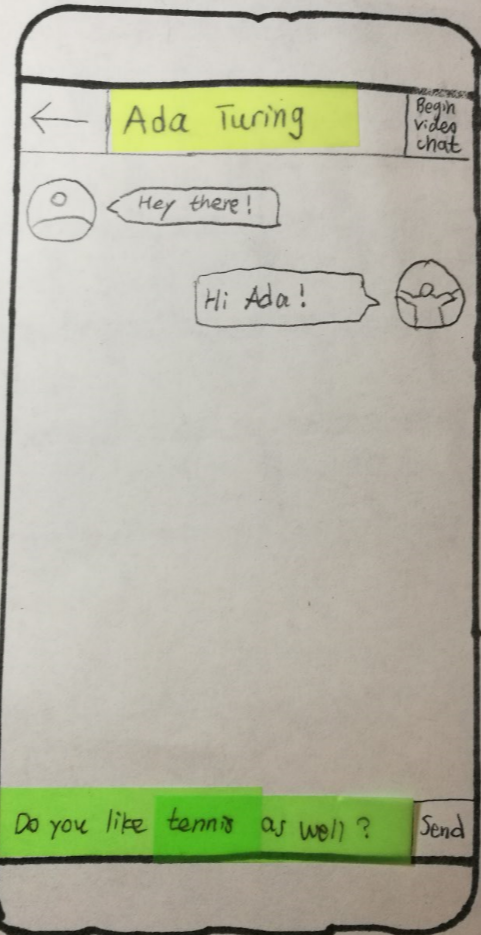 Ada Turing
Begin
video
chat
Hey there!
Hi Ada!
Do you like tennis as well?
Send